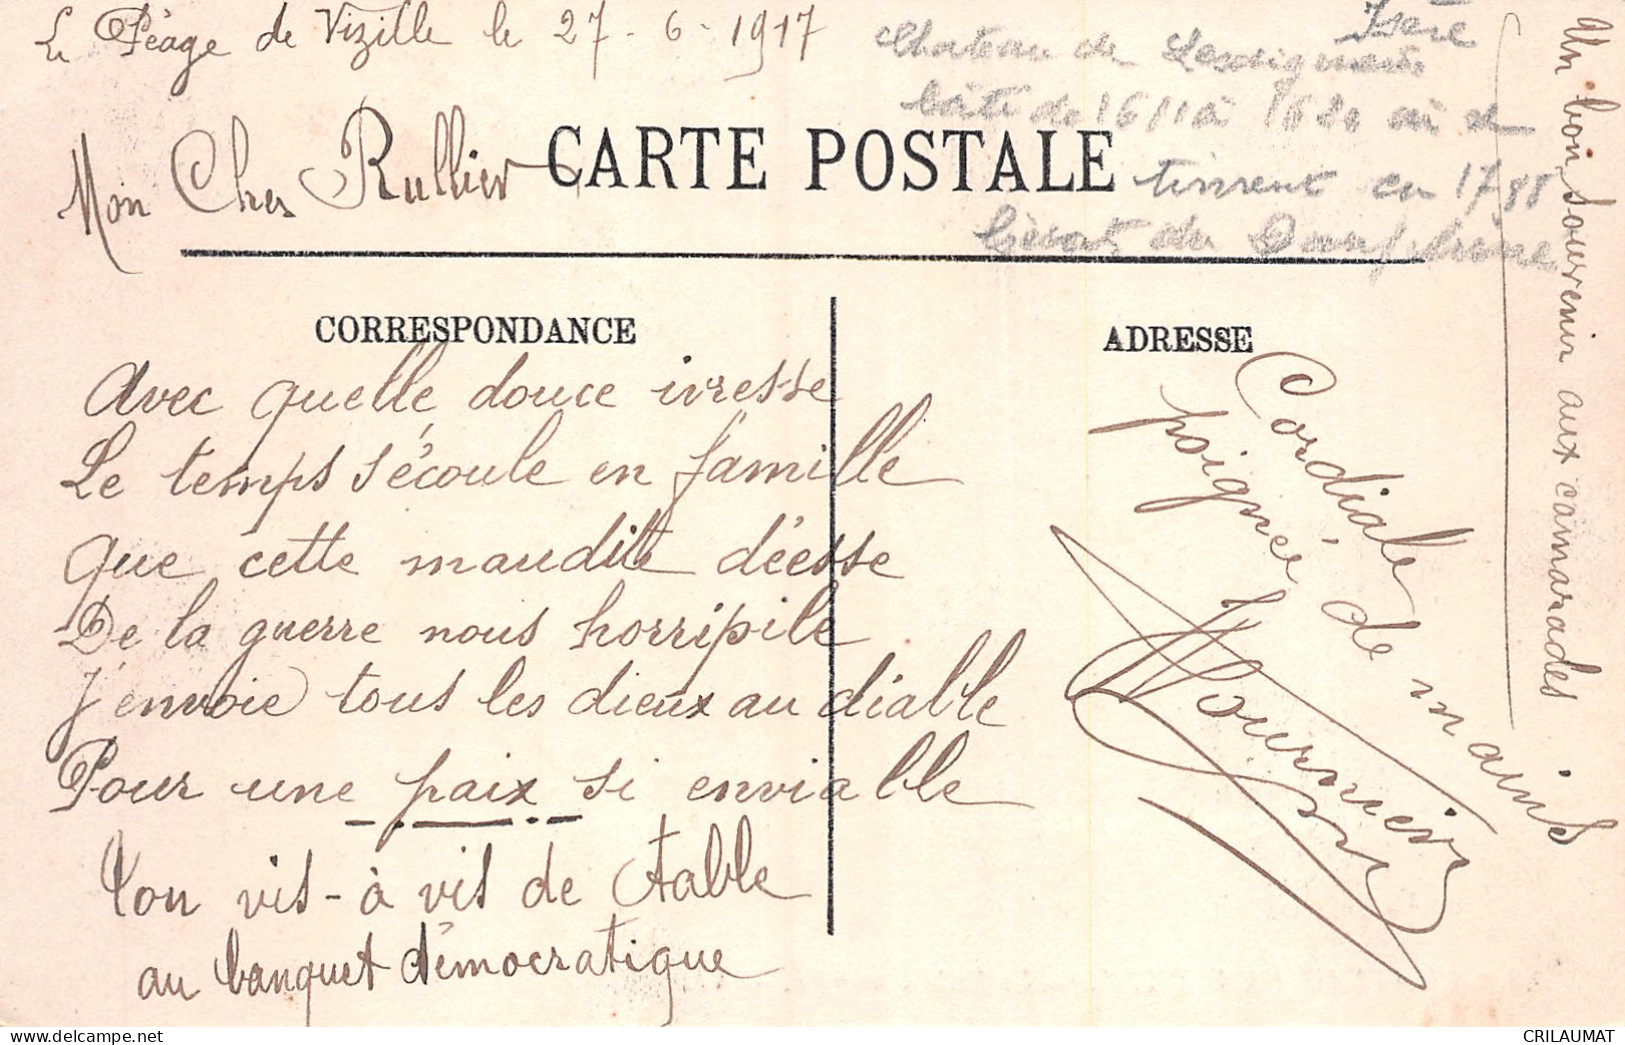 Le Péage de Vizille le 27-6-1917
Isère
Chateau de Lesdiguières
bâti de 1611 à 1620 où se
tinrent en 1788
les états du Dauphiné
Mon Cher Rullier
CARTE POSTALE
CORRESPONDANCE
Avec quelle douce ivresse
Le temps s'écoule en famille
Que cette maudite déesse
De la guerre nous horripile
J'envoie tous les dieux au diable
Pour une paix si enviable
Ton vis-à vis de table
au banquet démocratique
ADRESSE
Cordiale
poignée de mains
Un bon souvenir aux camarades
delcampe.net
CRILAUMAT